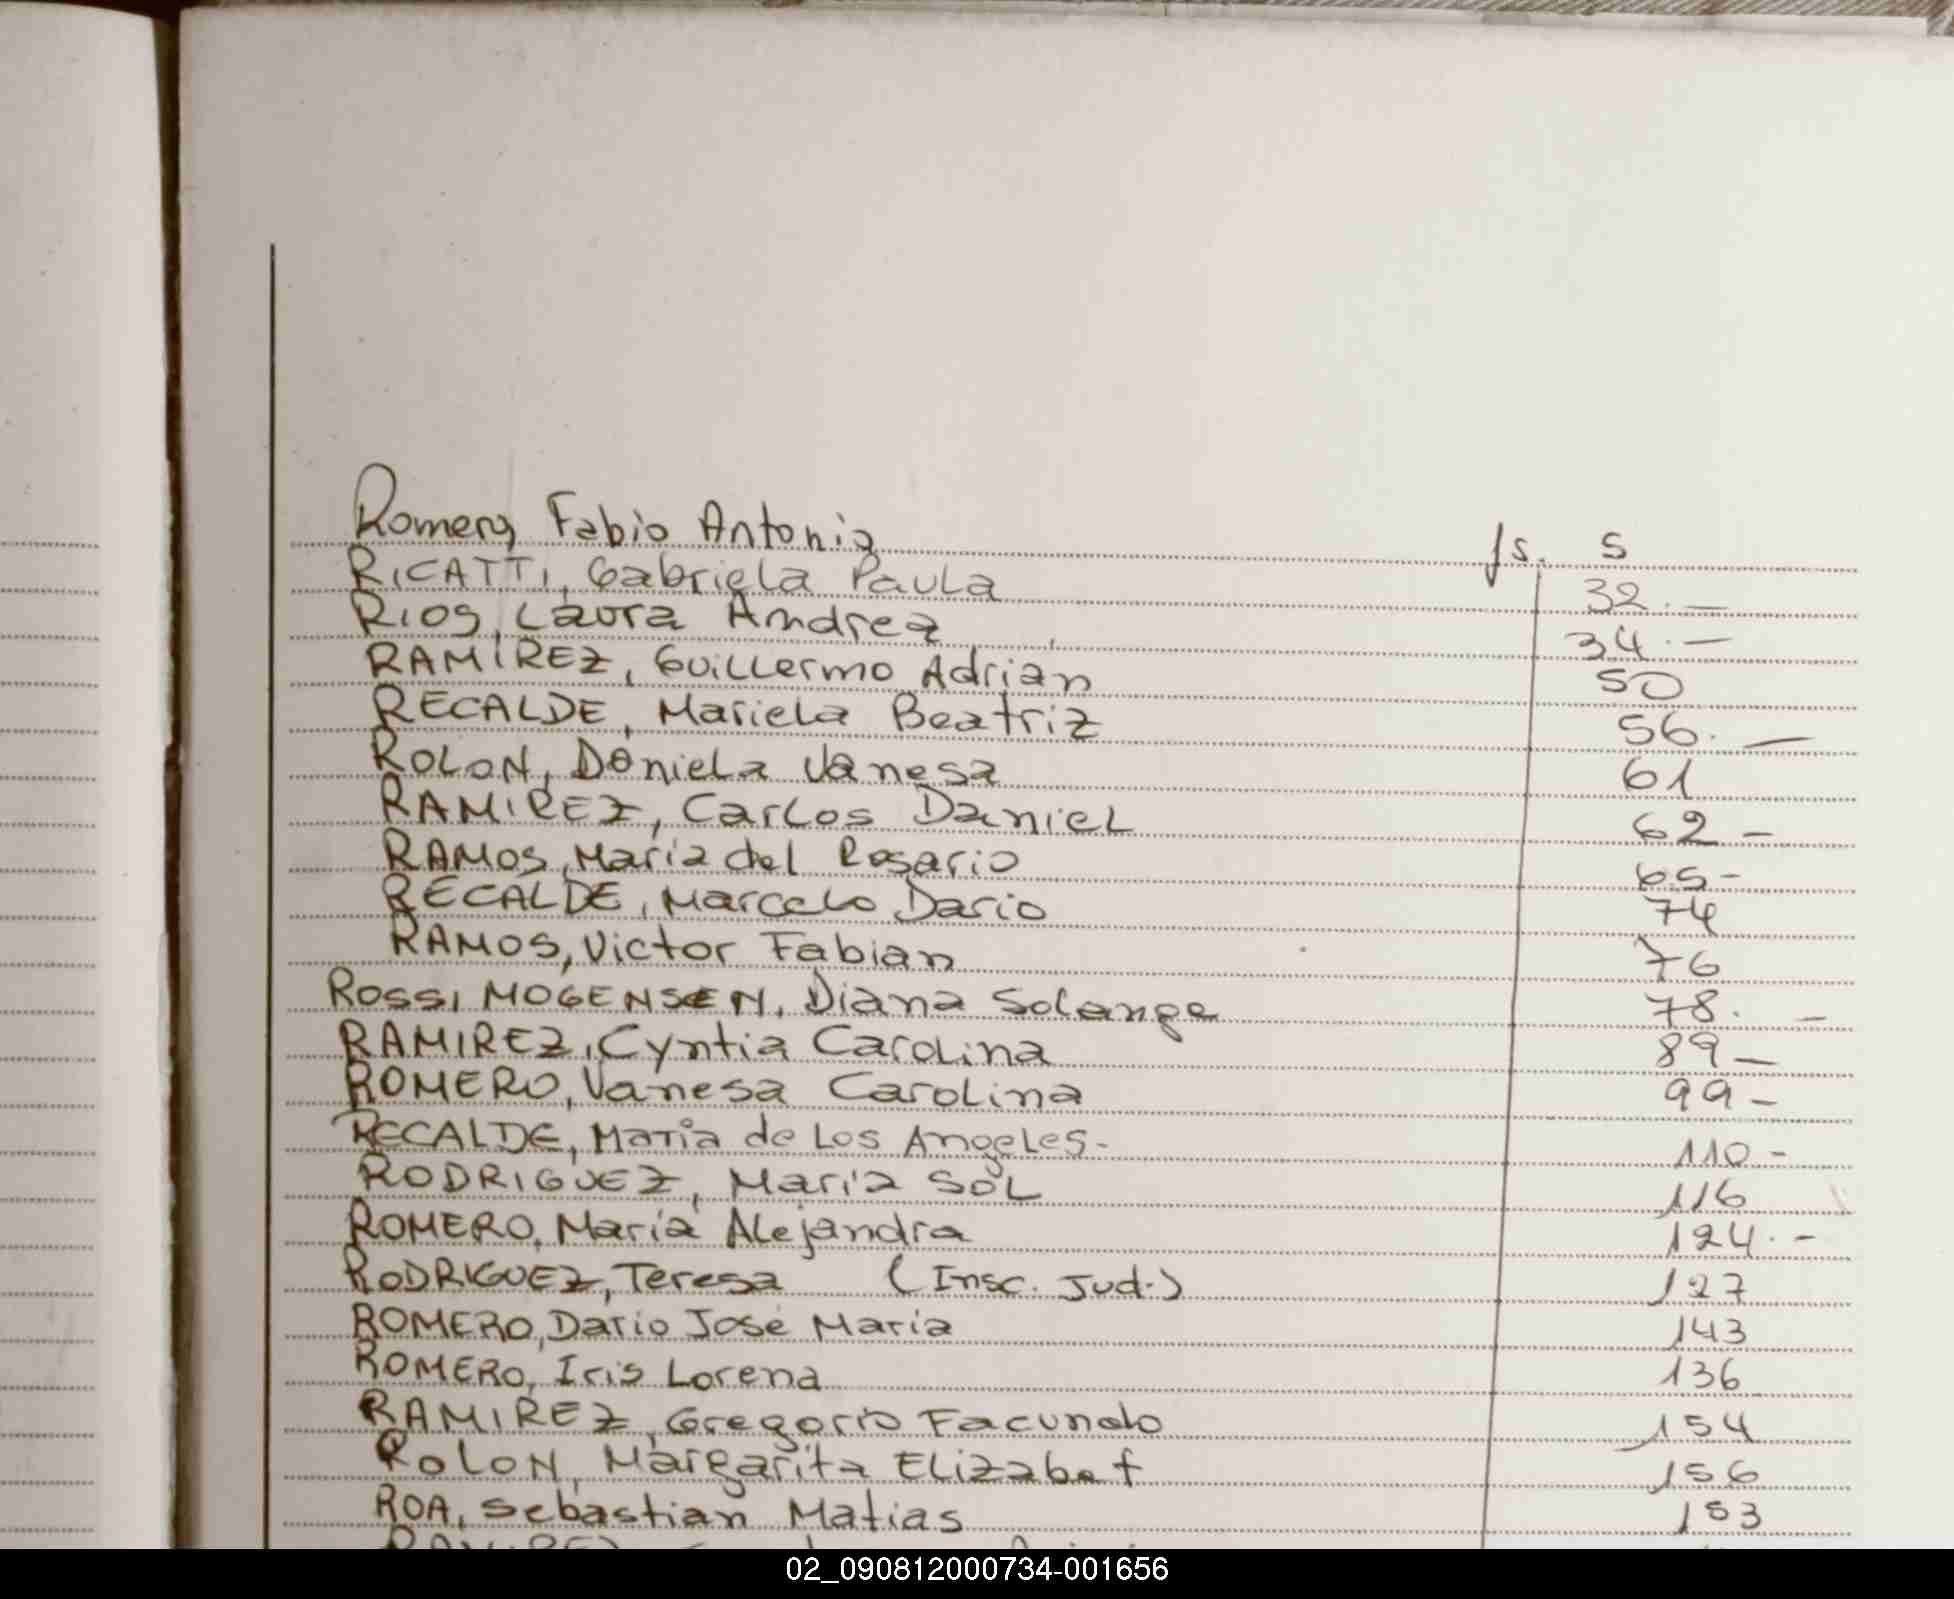 Romero, Fabio Antonio fs. 5
RICATTI, Gabriela Paula 32.—
RIOS, Laura Andrea 34.—
RAMIREZ, Guillermo Adrian 50
RECALDE, Mariela Beatriz 56.—
ROLON, Daniela Vanesa 61
RAMIREZ, Carlos Daniel 62-
RAMOS, Maria del Rosario 65-
RECALDE, Marcelo Dario 74
RAMOS, Victor Fabian 76
ROSSI MOGENSEN, Diana Solange 78.—
RAMIREZ, Cyntia Carolina 89—
ROMERO, Vanesa Carolina 99-
RECALDE, Maria de Los Angeles- 110-
RODRIGUEZ, Maria SOL 116
ROMERO, María Alejandra 124.-
RODRIGUEZ, Teresa (Insc. Jud.) 127
ROMERO, Dario José Maria 143
ROMERO, Iris Lorena 136
RAMIREZ, Gregorio Facundo 154
ROLON, Margarita Elizabet 156
ROA, Sebastian Matias 153
RAMIREZ
02_090812000734-001656